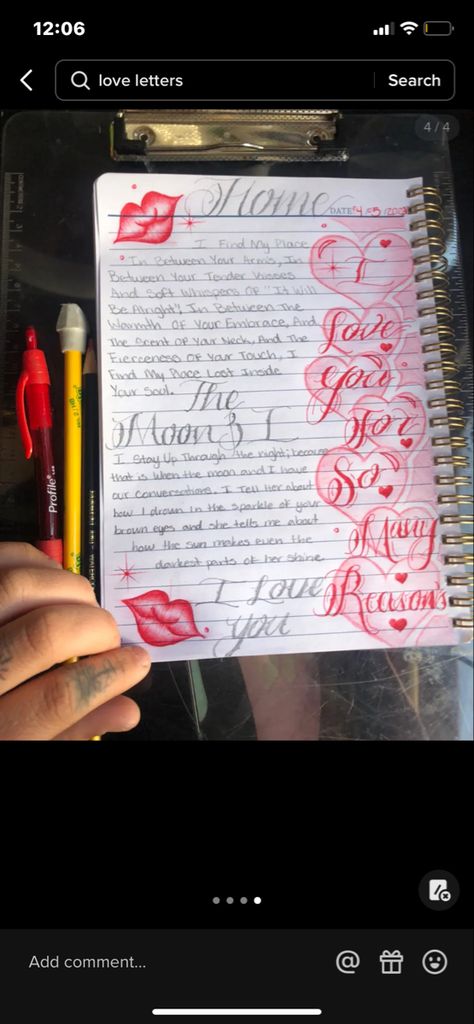 12:06
love letters
Search
4 / 4
Home
DATE
I Find My Place
In Between Your Arms, In
Between Your Tender Kisses
And Soft Whispers Of "It Will
Be Alright", In Between The
Warmth Of Your Embrace, And
The Scent Of Your Neck, And The
Fierceness Of Your Touch, I
Find My Place Lost Inside
Your Soul.
The
Moon & I
I Stay Up Through the night; because
that is when the moon and I have
our conversations. I Tell Her about
how I drown in the sparkle of your
brown eyes and she tells me about
how the sun makes even the
darkest parts of her shine
I Love
you
I
Love
you
For
So
Many
Reasons
Profile
Add comment...